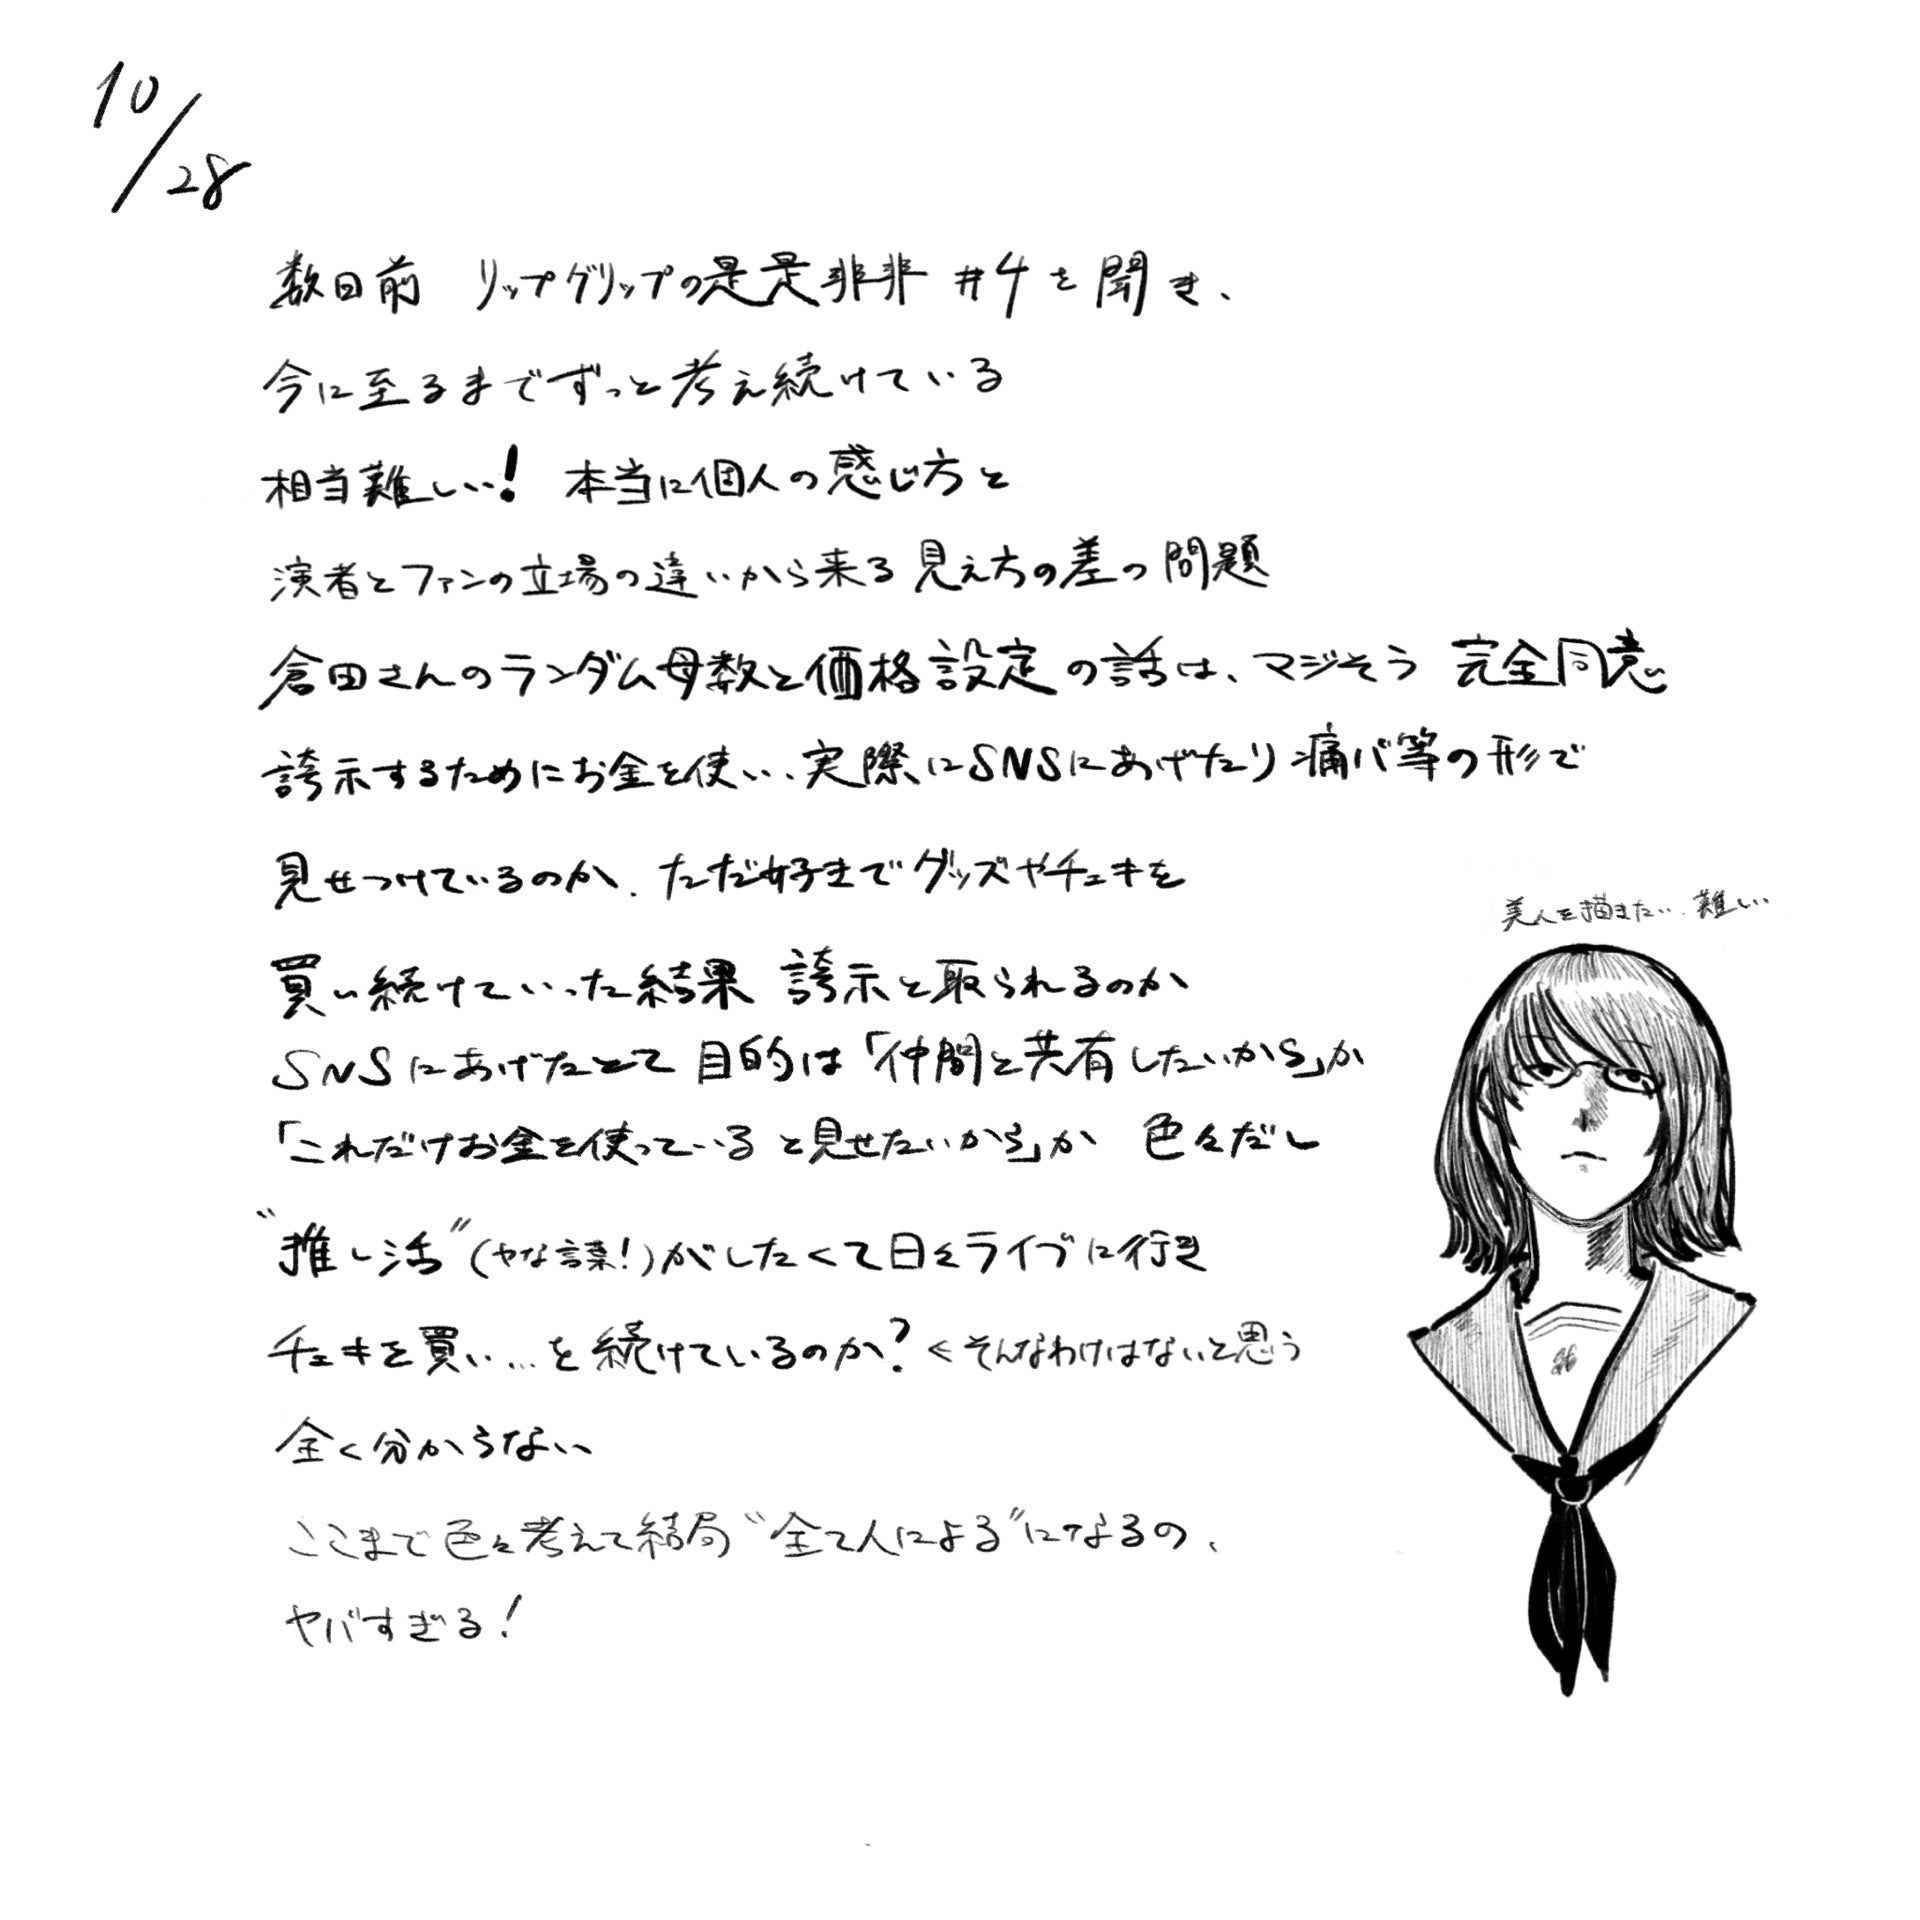 10/28
数日前 リップグリップの是是非非 #4を聞き、
今に至るまでずっと考え続けている
相当難しい! 本当に個人の感じ方と
演者とファンの立場の違いから来る見え方の差の問題
倉田さんのランダム母数と価格設定の話は、マジそう 完全同意
誇示するためにお金を使い、実際にSNSにあげたり痛バ等の形で
見せつけているのか、ただ好きでグッズやチェキを
買い続けていった結果 誇示と取られるのか
SNSにあげたとて目的は「仲間と共有したいから」か
「これだけお金を使っていると見せたいから」か 色々だし
"推し活"(ヤな言葉!)がしたくて日々ライブに行き
チェキを買い…を続けているのか?←そんなわけはないと思う
全く分からない
ここまで色々考えて結局"全て人による"になるの、
ヤバすぎる!
美人を描きたい、難しい